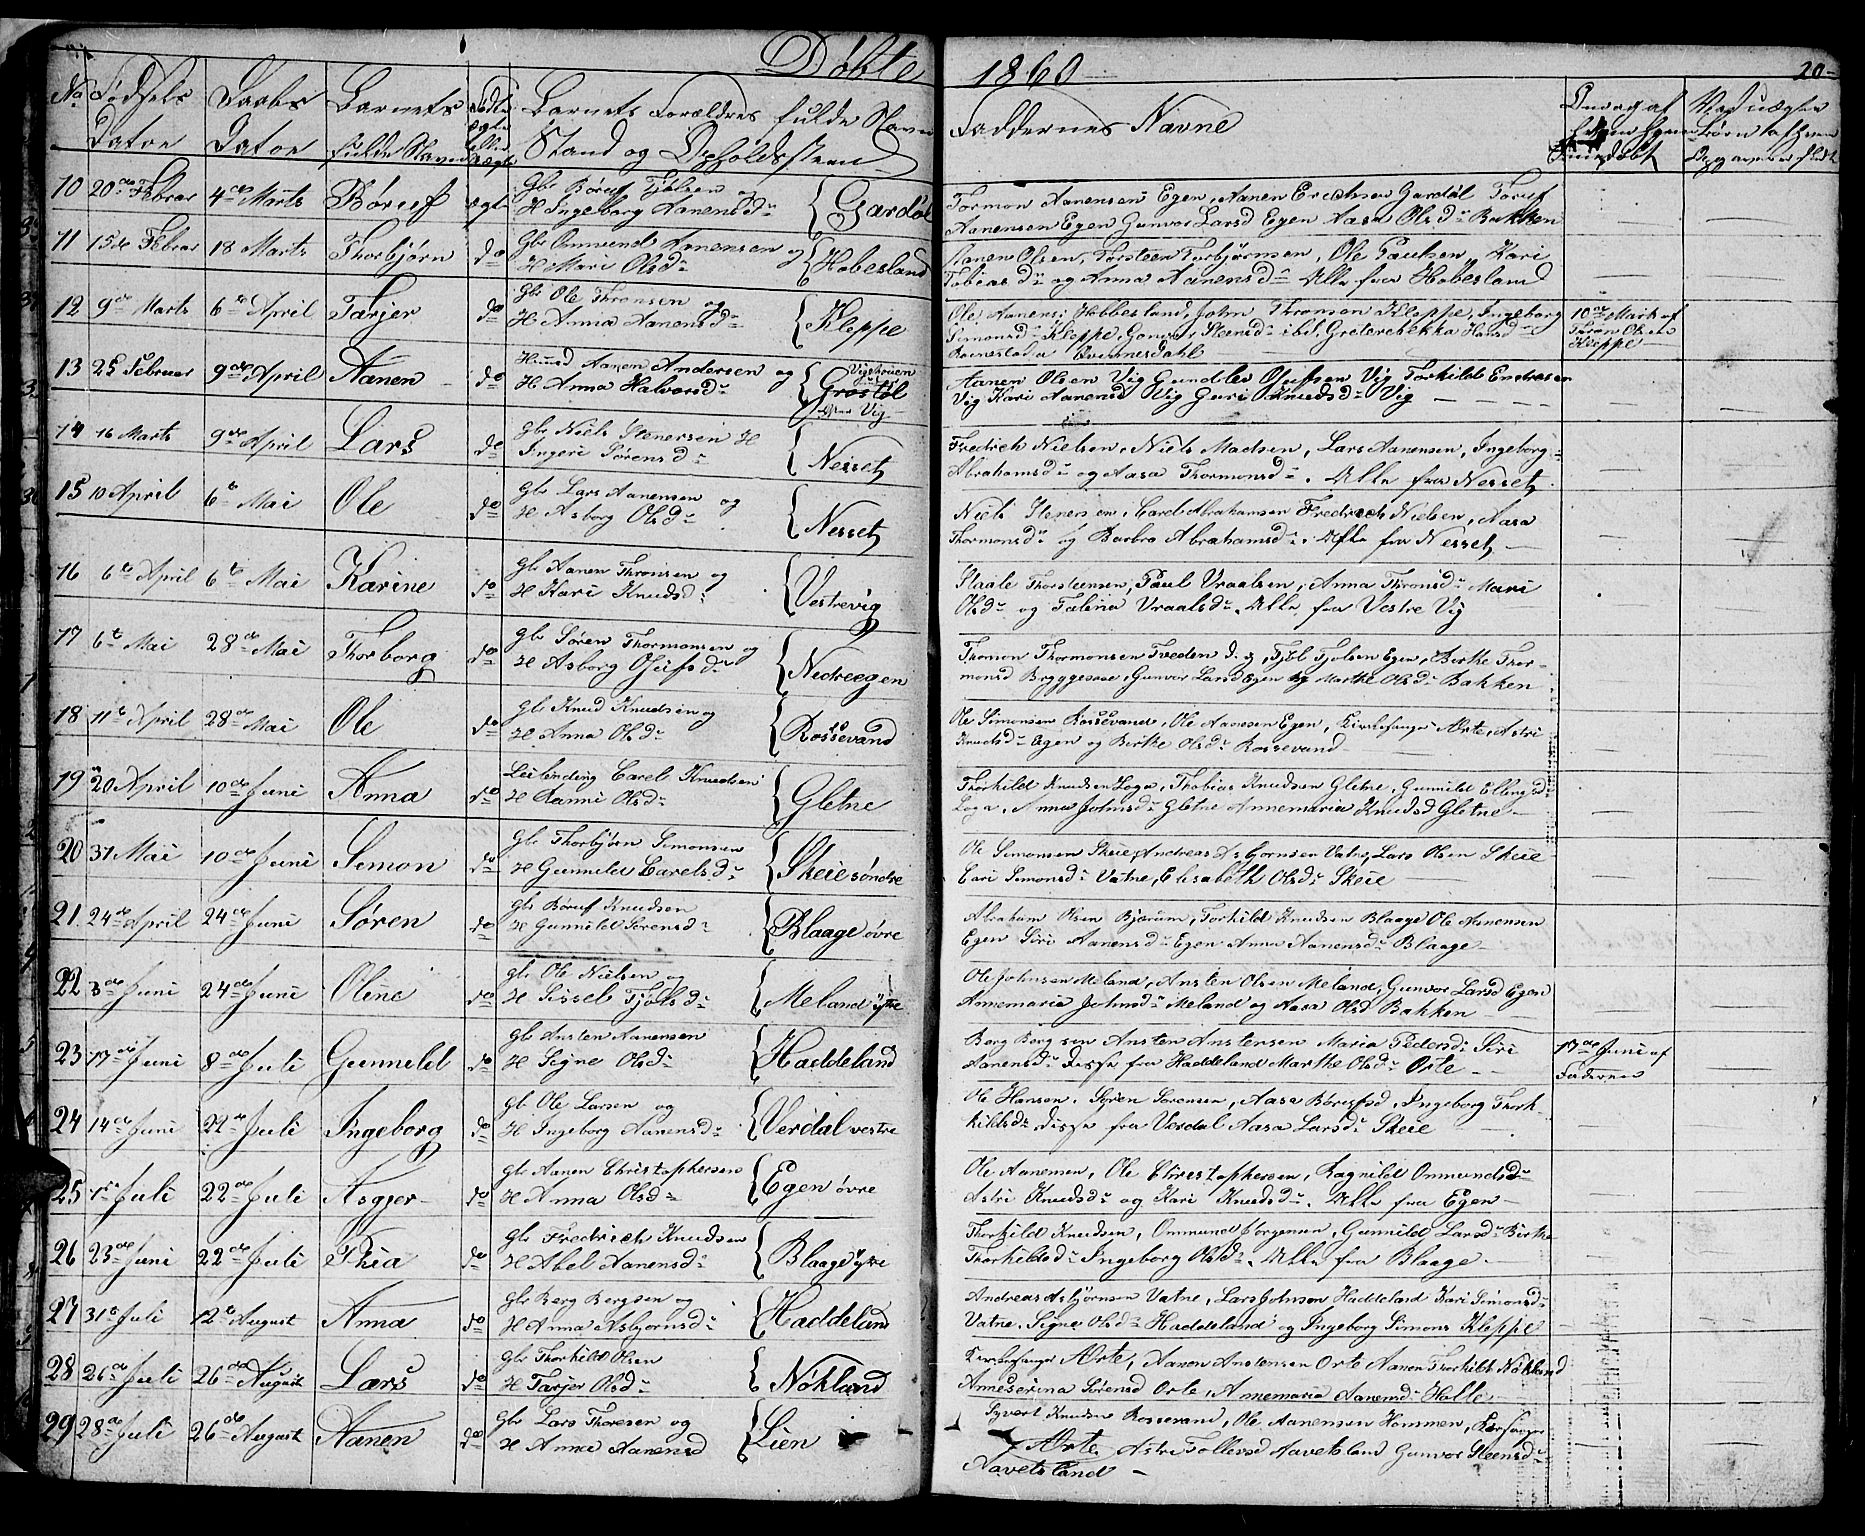 Døbte 1860 20
No Fødsels Daabs Barnets Barnets Forældres fulde Navn
Datoe Datoe fulde Navn Stand og Opholdsteen
Faddernes Navne
10 20de Febrar 4de Marts Børuf ægte Gbr Børuf Tjølsen og { Gardøl
H Ingeborg Aanensd:
Tormon Aanensen Egen, Aanen Erichsen Gardøl Toruf
Aanensen Egen Gunvor Larsd Egen Aasa Olsd: Bakken
11 15de Febrar 18 Marts Thorbjørn do Gbr Ommund Aanensen og { Hobesland
H Mari Olsd:
Aanen Olsen, Torsteen Torbjørnsen, Ole Paulsen, Kari
Tobiasd: og Anna Aanensd: Alle fra Hobesland
12 9de Marts 6te April Tarjer do Gbr Ole Thronsen og { Kleppe
H Anna Aanensd:
Ole Aanens: Hobbesland, John Thronsen Kleppe, Ingeborg
Simonsd: Kleppe, Steensd: ibd. Greterebekka Hansd
Qvinnesdahl
10de Marts af
Thron Olsen
Kleppe
13 25 Februar 9de April Aanen do Aanen Andersen og { Grostøl
H Anna Halvorsd:
Aanen Olsen Vig Gundlev Ofulsen Vig Torkild Endresen
Vig Kari Aanensd Vig Guri Knudsd: Vig
14 16 Marts 9de April Lars do Gbr Niels Stenersen H { Nesset
Ingeri Sørensd:
Fredrich Nielsen, Niels Madsen, Lars Aanensen, Ingeborg
Abrahamsd: og Aasa Thormonsd:. Alle fra Nesset
15 10 April 6te Mai Ole do Gbr Lars Aanensen og { Nesset
H Asborg Olsd:
Niels Stenersen, Carel Abrahamsen Fredrich Nielsen, Aasa
Thormonsd: og Barbro Abrahamsd:. Alle fra Nesset
16 6te April 6te Mai Karine do Gbr Aanen Thronsen og { Vestrevig
H Kari Knudsd:
Staale Thorsteensen, Paul Vraalsen, Anna Thronsd: Mari
Olsd: og Talina Vraalsd:. Alle fra Vestre Vig
17 6te Mai 28de Mai Thorborg do Gbr Søren Thormonsen og { Nedreegen
H Asborg Ofeifsd:
Thomon Thormonsen Tveden Tjøl Tjølsen Egen, Birthe Thor-
monsd Bryggesaae, Gunvor Larsd Egen og Marthe Olsd: Bakken
18 11te April 28de Mai Ole do Gbr Knud Knudsen og { Rossevand
H Anna Olsd:
Ole Simonsen Rossevand, Ole Aanesen Egen, Kirkesanger Ørte, Astri
Knudsd: Egen og Birthe Olsd: Rossevand
19 20 April 10de Juni Anna do Leilending Carel Knudsen { Gletne
H Ranni Olsd:
Thorkild Knudsen Loga, Thobias Knudsen Gletne, Gunnild Ellingsd:
Loga, Anna Johnsd: Gletne Annemaria Knudsd Gletne
20 31 Mai 10de Juni Simon do Gbr Thorbjørn Simonsen { Skeie søndre
H Gunnild Carelsd:
Ole Simonsen Skeie, Andreas Asbjørnsen Vatne, Lars Olsen Skeie
Cari Simonsd: Vatne, Elisabeth Olsd: Skeie
21 24de April 24de Juni Søren do Gbr Børuf Knudsen { Blaage øvre
H Gunnild Sørensd:
Abraham Olsen Bjærum, Torkild Knudsen Blaage Ole Aanensen
Egen Siri Aanensd: Egen Anna Aanensd: Blaage
22 3de Juni 24de Juni Oline do Gbr Ole Nielsen og { Meland ytre
H Sissel Tjølsd:
Ole Johnsen Meland, Ansten Olsen Meland, Gunvor Larsd Egen
Annemaria Johnsd: Meland og Aasa Olsd Bakken
23 17de Juni 8de Juli Gunnild do Gbr Ansten Aanensen { Haddeland
H Signe Olsd:
Borg Borgsen Ansten Anstensen Maria Pedersd: Siri
Aanensd: disse fra Haddeland Marthe Olsd: Ørte
17de Juni af
Faderen
24 14de Juni 22de Juli Ingeborg do Gbr Ole Larsen og { Verdal vestre
H Ingeborg Aanensd:
Ole Hansen, Syren Sørensen, Aasa Børufsd, Ingeborg Thork-
kildsd: disse fra Verdal Aasa Larsd: Skeie
25 1ste Juli 22de Juli Asgjer do Gbr Aanen Christophersen { Egen øvre
H Anna Olsd:
Ole Aanensen, Ole Christophersen, Ragnild Ommundsd:
Astri Knudsd: og Kari Knudsd:. Alle fra Egen
26 23de Juni 22de Juli Thia do Gbr Fredrich Knudsen { Blaage ytre
H Abel Aanensd:
Thorkild Knudsen, Ommund Jørgensen, Gunnild Larsd: Birthe
Thorkildsd: Ingeborg Olsd:. Alle fra Blaage
27 31te Juli 12te August Anna do Gbr Berg Bergsen og { Haddeland
H Anna Asbjørnsd:
Andreas Asbjørnsen Vatne, Lars Johnson Haddeland Kari Simonsd:
Vatne, Signe Olsd: Haddeland og Ingeborg Simons Kleppe
28 26de Juli 26de August Lars do Gbr Thorkild Olsen { Nøkland
H Tarjer Olsd:
Kirkesanger Ørte, Aanen Anstensen Ørte Aanen Thorkilds Nøkland
Anneserina Sørensd Ørte, Annemaria Aanensd: Holle
29 28de Juli 26de August Aanen do Gbr Lars Thoresen og { Lien
H Anna Aanensd
Syvert Knudsen Rossevand, Ole Aanensen Hommen, Kirksanger
Ørte Astri Tollevsd Aavetsland Gunvor Steensd:
Aavetsland